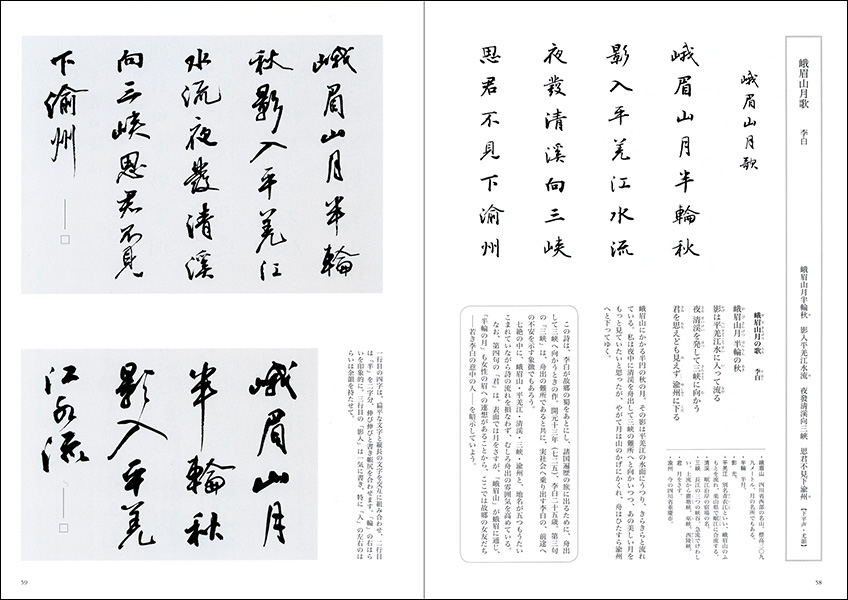 峨眉山月歌　李白
峨眉山月半輪秋　影入平羌江水流　夜發清溪向三峽　思君不見下渝州　【下平声・尤韻】
峨眉山月歌
峨眉山月半輪秋
影入平羌江水流
夜發清溪向三峽
思君不見下渝州
峨眉山月の歌　李白
峨眉山月　半輪の秋
影は平羌江水に入って流る
夜　清溪を発して三峡に向かう
君を思えども見えず　渝州に下る
・峨眉山　四川省西部の名山。標高三〇九
九メートル。月の名所でもある。
・半輪　半月。
・影　光。
・清溪　岷江沿岸の宿場の名。
・君　月をさす。
・渝州　今の四川省重慶市。
峨眉山にかかる半円の秋の月。その影は平羌江の水面にうつり、きらきらと流れ
ている。私は夜中に清溪を舟出して三峡の難所へと向かいつつ、あの美しい月を
もっと見ていたいと思ったが、やがて月は山のかげにかくれ、舟はひたすら渝州
へと下ってゆく。
この詩は、李白が故郷の蜀をあとにし、諸国遍歴の旅に出るために、舟出
して三峡へ向かうときの作。開元十三年（七二五）、李白二十五歳。第三句
の「三峡」は、舟出の難所であると共に、実社会へ乗り出す李白の、前途へ
の不安を示す象徴でもあろう。
七絶の中に、峨眉山・平羌江・清溪・三峡・渝州と、地名が五つもうたい
こまれていながら詩の流れを損なわず、むしろ舟出の雰囲気を高めている。
なお、第四句の「君」は、表面では月をさすが、「峨眉山」が蛾眉に通じ、
「半輪の月」も女性の眉への連想があることから、ここでは故郷の女友だち
――若き李白の意中の人――を暗示していよう。
58
峨眉山月半輪
秋影入平羌江
水流夜發清溪
向三峽思君不見
下渝州
峨眉山月
半輪秋
影入平羌
江水流
一行目の四字は、扁平な文字と縦長の文字を交互に組み合わせ、二行目
は「半」を二字分、伸び伸びと書き帳尻を合わせます。「輪」の右はら
いを印象的に、三行目の「影入」は一気に書き、特に「入」の左右のは
らいは余韻を持たせて。
59